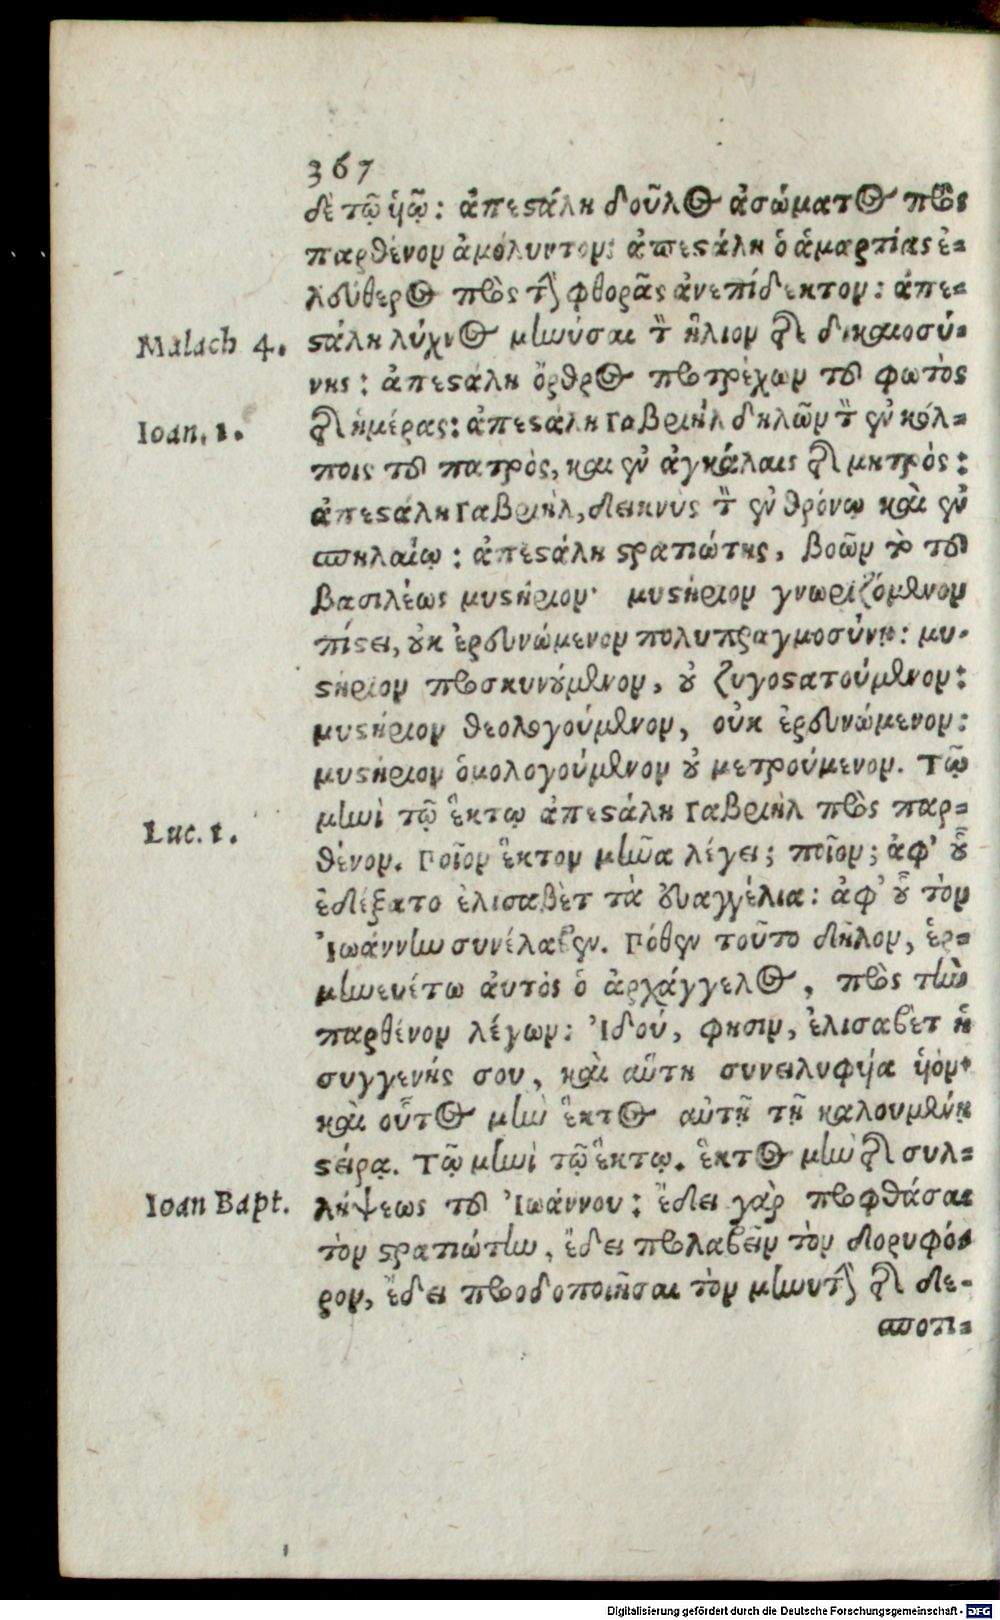 367
δὲ τῷ ὑῷ: ἀπεστάλη δοῦλος ἀσώματος πρὸς
παρθένον ἀμόλυντον: ἀπεστάλη ὁ ἁμαρτίας ἐ-
λεύθερος πρὸς τὴν φθορᾶς ἀνεπίδεκτον: ἀπε-
Malach 4. στάλη λύχνος μηνύσαι τὸν ἥλιον τῆς δικαιοσύ-
νης: ἀπεστάλη ὄρθρος προτρέχων τοῦ φωτὸς
Ioan. 1. τῆς ἡμέρας: ἀπεστάλη Γαβριὴλ δηλῶν τὸν ἐν κόλ-
ποις τοῦ πατρὸς, καὶ ἐν ἀγκάλαις τῆς μητρὸς:
ἀπεστάλη Γαβριὴλ, δεικνὺς τὸν ἐν θρόνῳ καὶ ἐν
σπηλαίῳ: ἀπεστάλη στρατιώτης, βοῶν τὸ τοῦ
βασιλέως μυστήριον· μυστήριον γνωριζόμενον
πίστει, οὐκ ἐρευνώμενον πολυπραγμοσύνῃ: μυ-
στήριον προσκυνούμενον, οὐ ζυγοστατούμενον:
μυστήριον θεολογούμενον, οὐκ ἐρευνώμενον:
μυστήριον ὁμολογούμενον οὐ μετρούμενον. Τῷ
Luc. 1. μηνὶ τῷ ἕκτῳ ἀπεστάλη Γαβριὴλ πρὸς παρ-
θένον. Ποῖον ἕκτον μῆνα λέγει; ποῖον; ἀφ' οὗ
ἐδέξατο ἐλισαβὲτ τὰ εὐαγγέλια: ἀφ' οὗ τὸν
Ἰωάννην συνέλαβεν. Πόθεν τοῦτο δῆλον, ἑρ-
μηνευέτω αὐτὸς ὁ ἀρχάγγελος, πρὸς τὴν
παρθένον λέγων: Ἰδού, φησιν, ἐλισαβὲτ ἡ
συγγενής σου, καὶ αὕτη συνειλυφυῖα ὑόν·
καὶ οὗτος μὴν ἕκτος αὐτῇ τῇ καλουμένῃ
στείρᾳ. Τῷ μηνὶ τῷ ἕκτῳ. ἕκτος μὴν τῆς συλ-
Ioan Bapt. λήψεως τοῦ Ἰωάννου: ἔδει γὰρ προφθάσαι
τὸν στρατιώτην, ἔδει προλαβεῖν τὸν δορυφό-
ρον, ἔδει προοδοποιῆσαι τὸν μηνυτὴν τῆς δε-
σποτι-
Digitalisierung gefördert durch die Deutsche Forschungsgemeinschaft - DFG